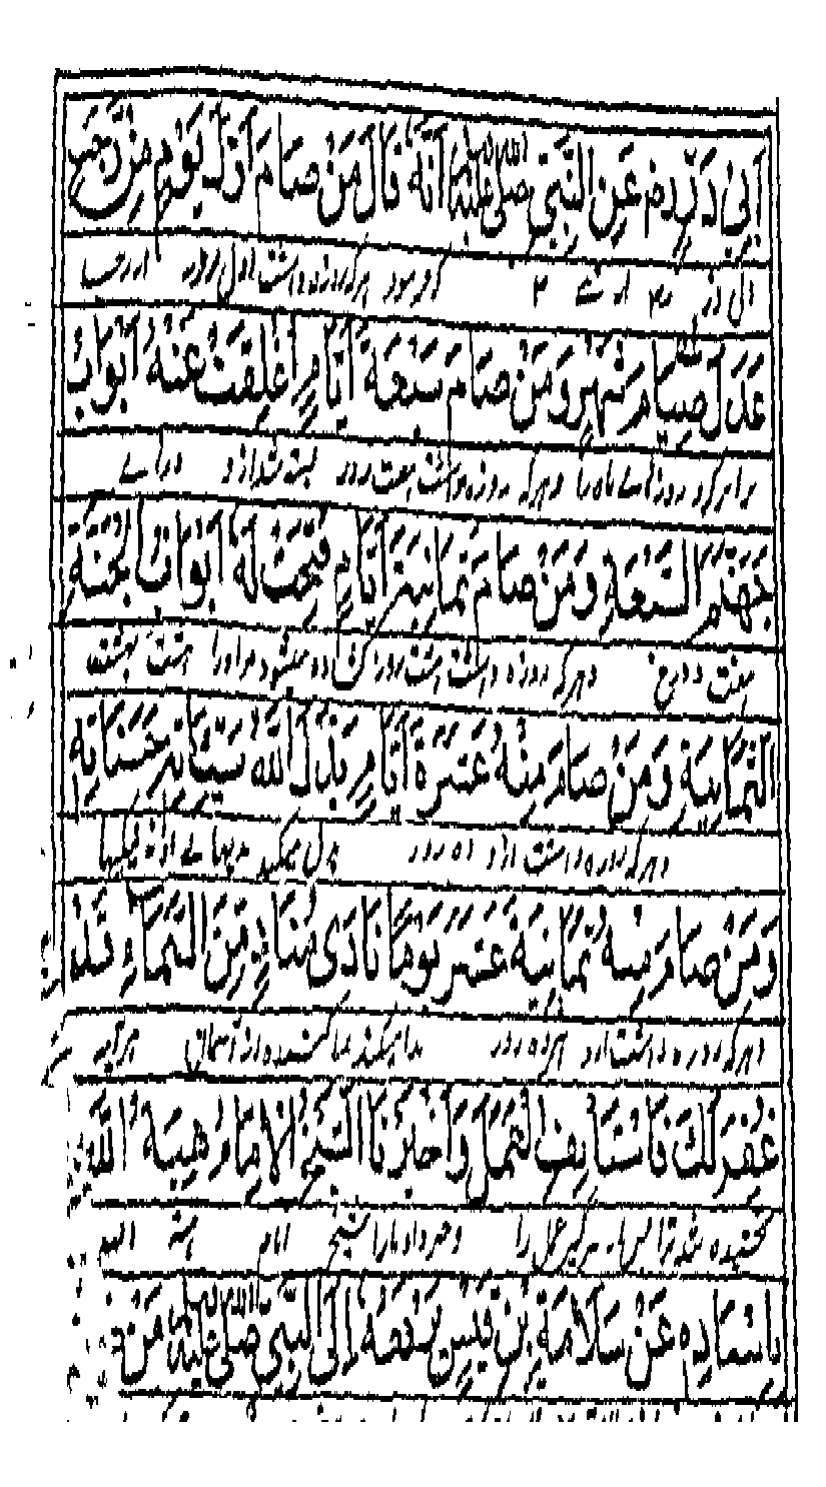 اَبِیْ ذَرٍّ رض عَنِ النَّبِیِّ صَلَّی اللهُ عَلَیْهِ اَنَّهٗ قَالَ مَنْ صَامَ اَوَّلَ یَوْمٍ مِنْ رَجَبٍ
هرکه روزه داشت اول روز از رجب
عَدَلَ صِیَامَ شَهْرٍ وَمَنْ صَامَ سَبْعَةَ اَیَّامٍ اُغْلِقَتْ عَنْهُ اَبْوَابُ
برابر کرد روزهاے ماه را وهرکه روزه داشت هفت روز بسته شد ازو درهاے
جَهَنَّمَ السَّبْعَةِ وَمَنْ صَامَ ثَمَانِیَةَ اَیَّامٍ فُتِحَتْ لَهٗ اَبْوَابُ الْجَنَّةِ
هفت دوزخ وهرکه روزه داشت هشت روز کشاده میشود مر اورا هشت بهشت
الثَّمَانِیَةِ وَمَنْ صَامَ مِنْهُ عَشَرَةَ اَیَّامٍ بَدَّلَ اللهُ سَیِّئَاتِهٖ حَسَنَاتٍ
وهرکه روزه داشت ازو ده روز بدل میکند بدیهاے او نیکیها
وَمَنْ صَامَ مِنْهُ ثَمَانِیَةَ عَشَرَ یَوْمًا نَادٰی مُنَادٍ مِّنَ السَّمَاءِ قَدْ
وهرکه روزه داشت ازو هژده روز ندا میکند ندا کننده از آسمان هر آیه
غُفِرَ لَكَ فَاسْتَانِفِ الْعَمَلَ وَاَخْبَرَنَا الشَّیْخُ الْاِمَامُ هِبَةُ اللهِ
بخشیده شد ترا پس از سر گیر عمل را وخبر داد مارا شیخ امام هبة الله
بِاِسْنَادِهٖ عَنْ سَلَامَةِ بْنِ قَیْسٍ یَرْفَعُهٗ اِلَی النَّبِیِّ صَلَّی اللهُ عَلَیْهِ مَنْ